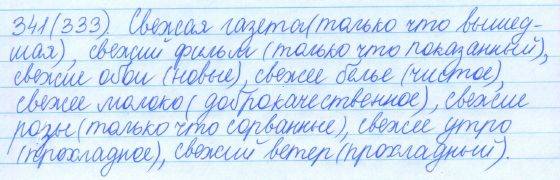 341(333). Свежая газета(только что вышед-
шая), свежий фильм (только что показанный),
свежие обои (новые), свежее белье (чистое),
свежее молоко( доброкачественное), свежие
розы(только что сорванные), свежее утро
(прохладное), свежий ветер(прохладный).